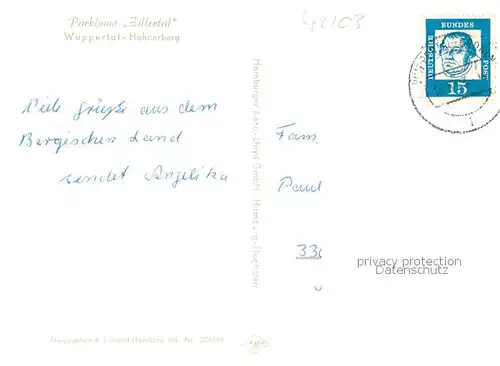 Parkhaus „Zillertal“
Wuppertal-Hahnerberg
42103
DEUTSCHE BUNDES POST
15
Viele Grüße aus dem
Bergischen Land
sendet Angelika
Fam
Paul
33
privacy protection
Datenschutz
Hamburger Aero-Lloyd GmbH., Hamburg-Flughafen